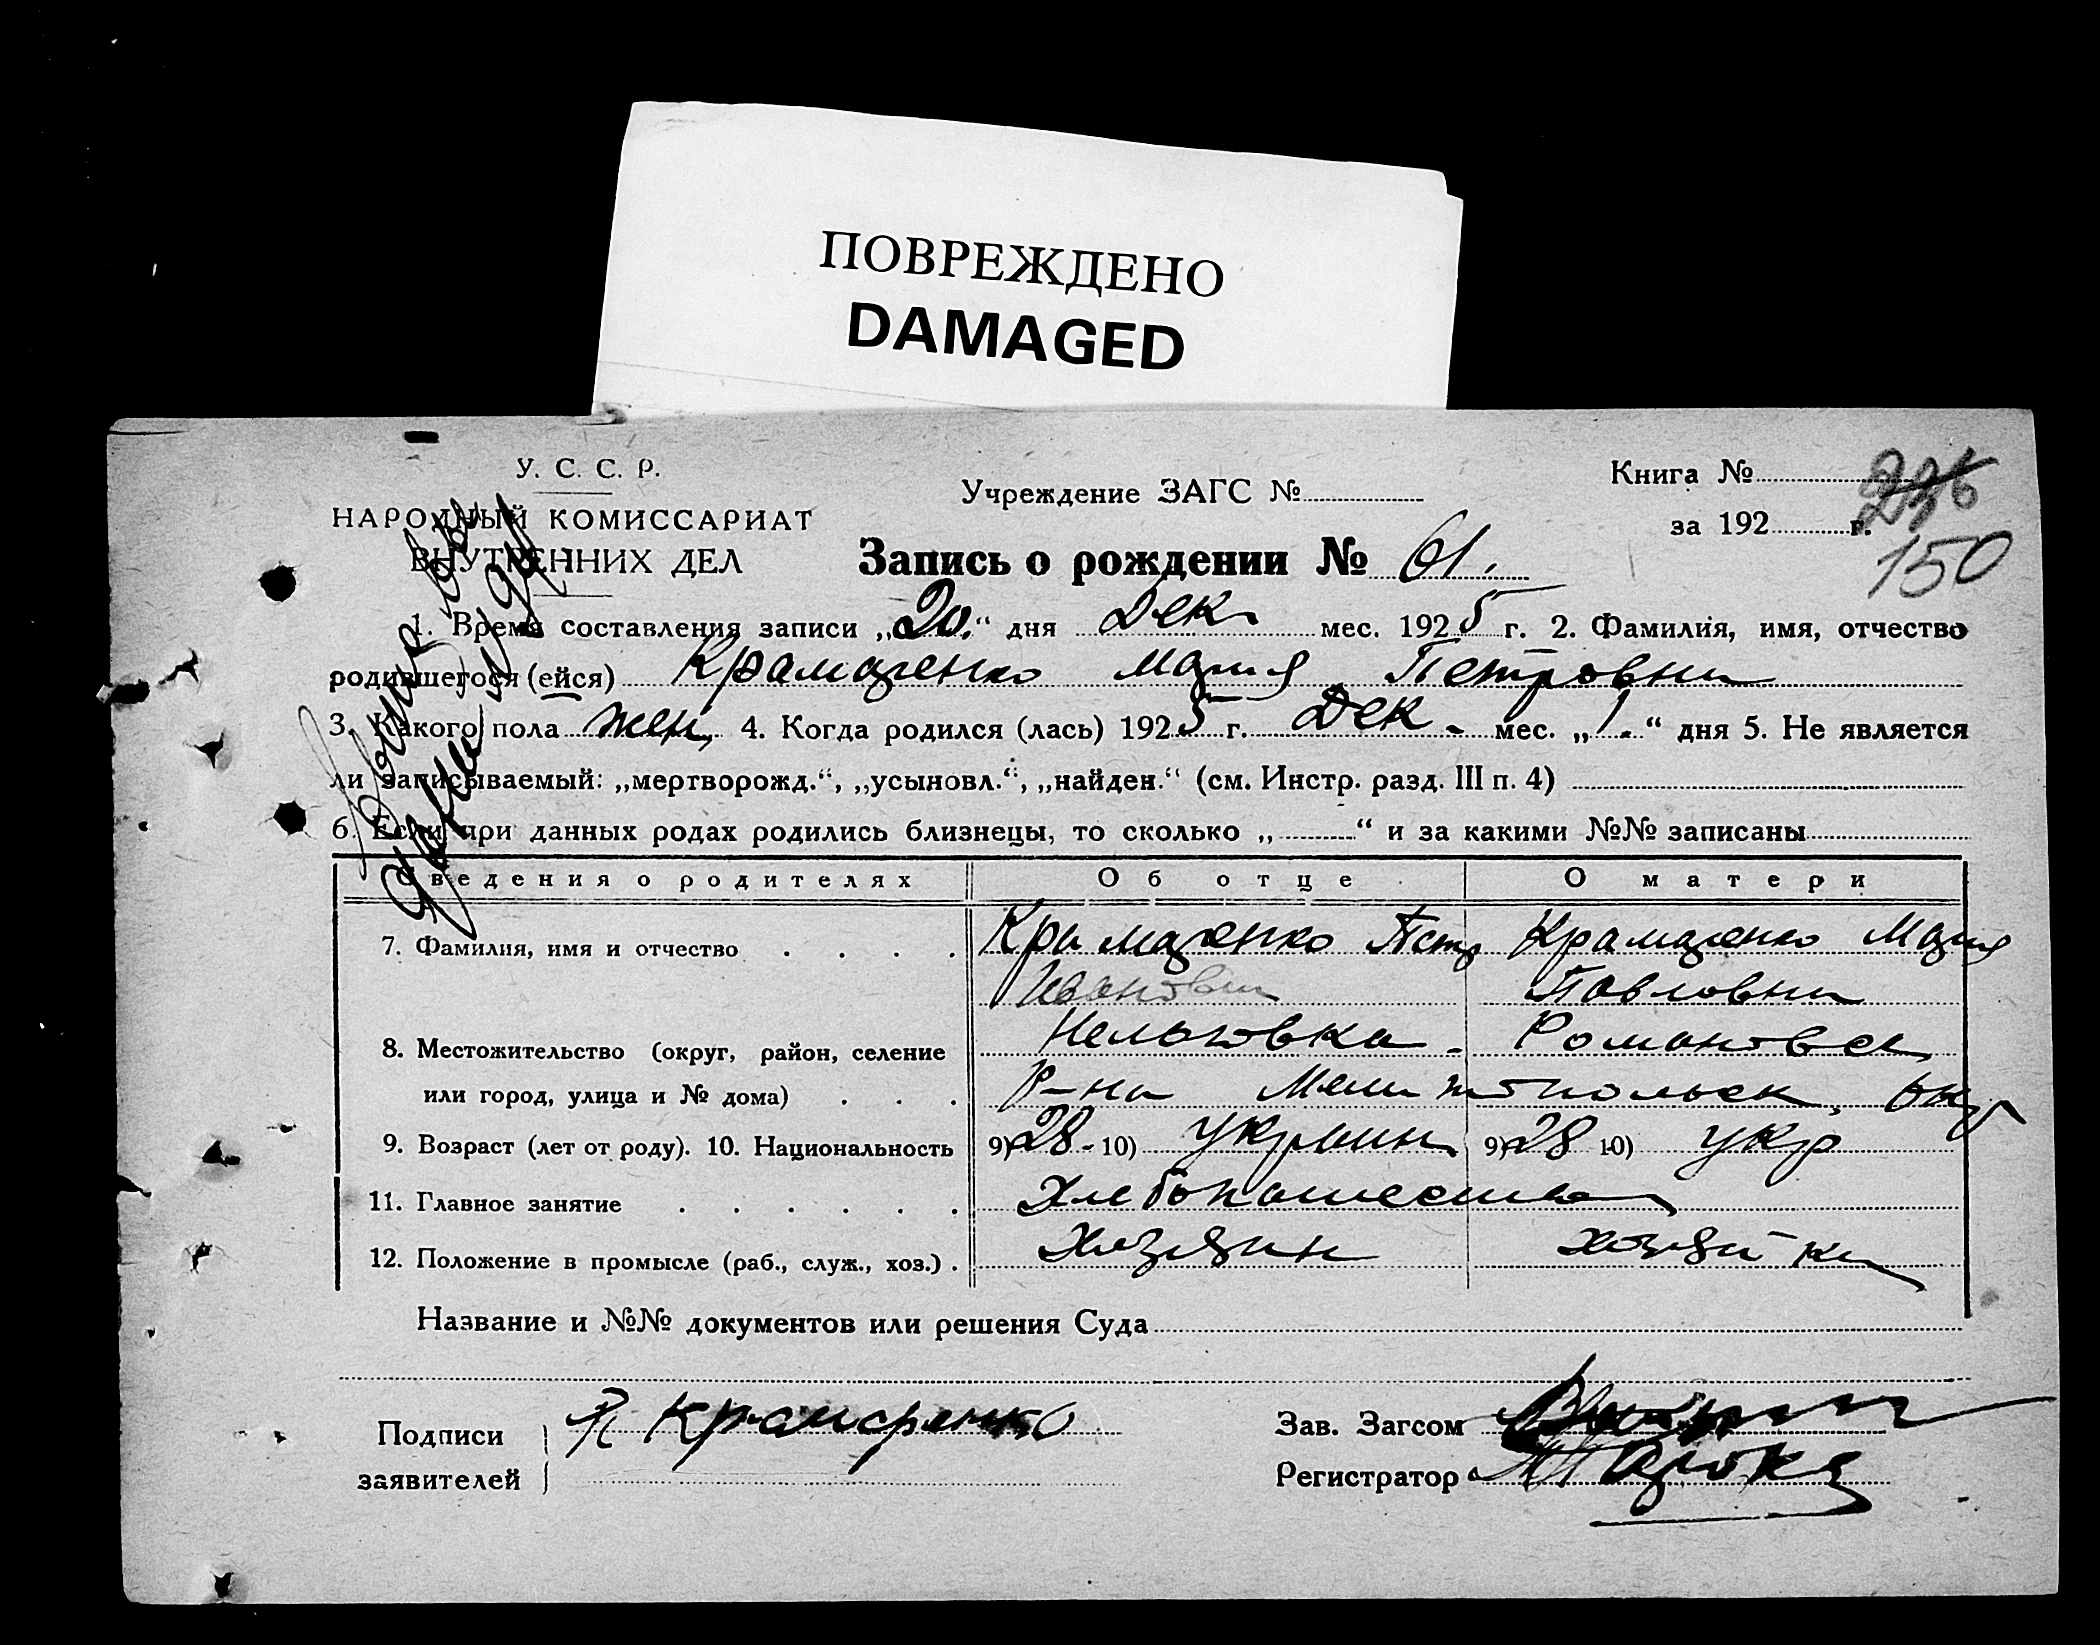 ПОВРЕЖДЕНО
DAMAGED
У. С. С. Р.
НАРОДНЫЙ КОМИССАРИАТ
ВНУТРЕННИХ ДЕЛ
Учреждение ЗАГС №
Книга № 226
за 192 г.
150
Запись о рождении № 61.
1. Время составления записи „20.“ дня Дек. мес. 1925 г. 2. Фамилия, имя, отчество
родившегося (ейся) Крамаренко Мария Петровна
3. Какого пола жен, 4. Когда родился (лась) 1925 г. Дек. мес. „1.“ дня 5. Не является
ли записываемый: „мертворожд.“, „усыновл.“, „найден.“ (см. Инстр. разд. III п. 4)
6. Если при данных родах родились близнецы, то сколько „ “ и за какими №№ записаны
Сведения о родителях Об отце О матери
7. Фамилия, имя и отчество Крамаренко Петр Крамаренко Мария
Иванович Павловна
8. Местожительство (округ, район, селение Романовск
или город, улица и № дома) Р-на Мелитопольск, окр
9. Возраст (лет от роду). 10. Национальность 9) 28 - 10) украин 9) 28 10) укр
11. Главное занятие Хлебопашество
12. Положение в промысле (раб., служ., хоз.) . хозяин хозяйка
Название и №№ документов или решения Суда
Подписи П Крамаренко
заявителей
Зав. Загсом
Регистратор